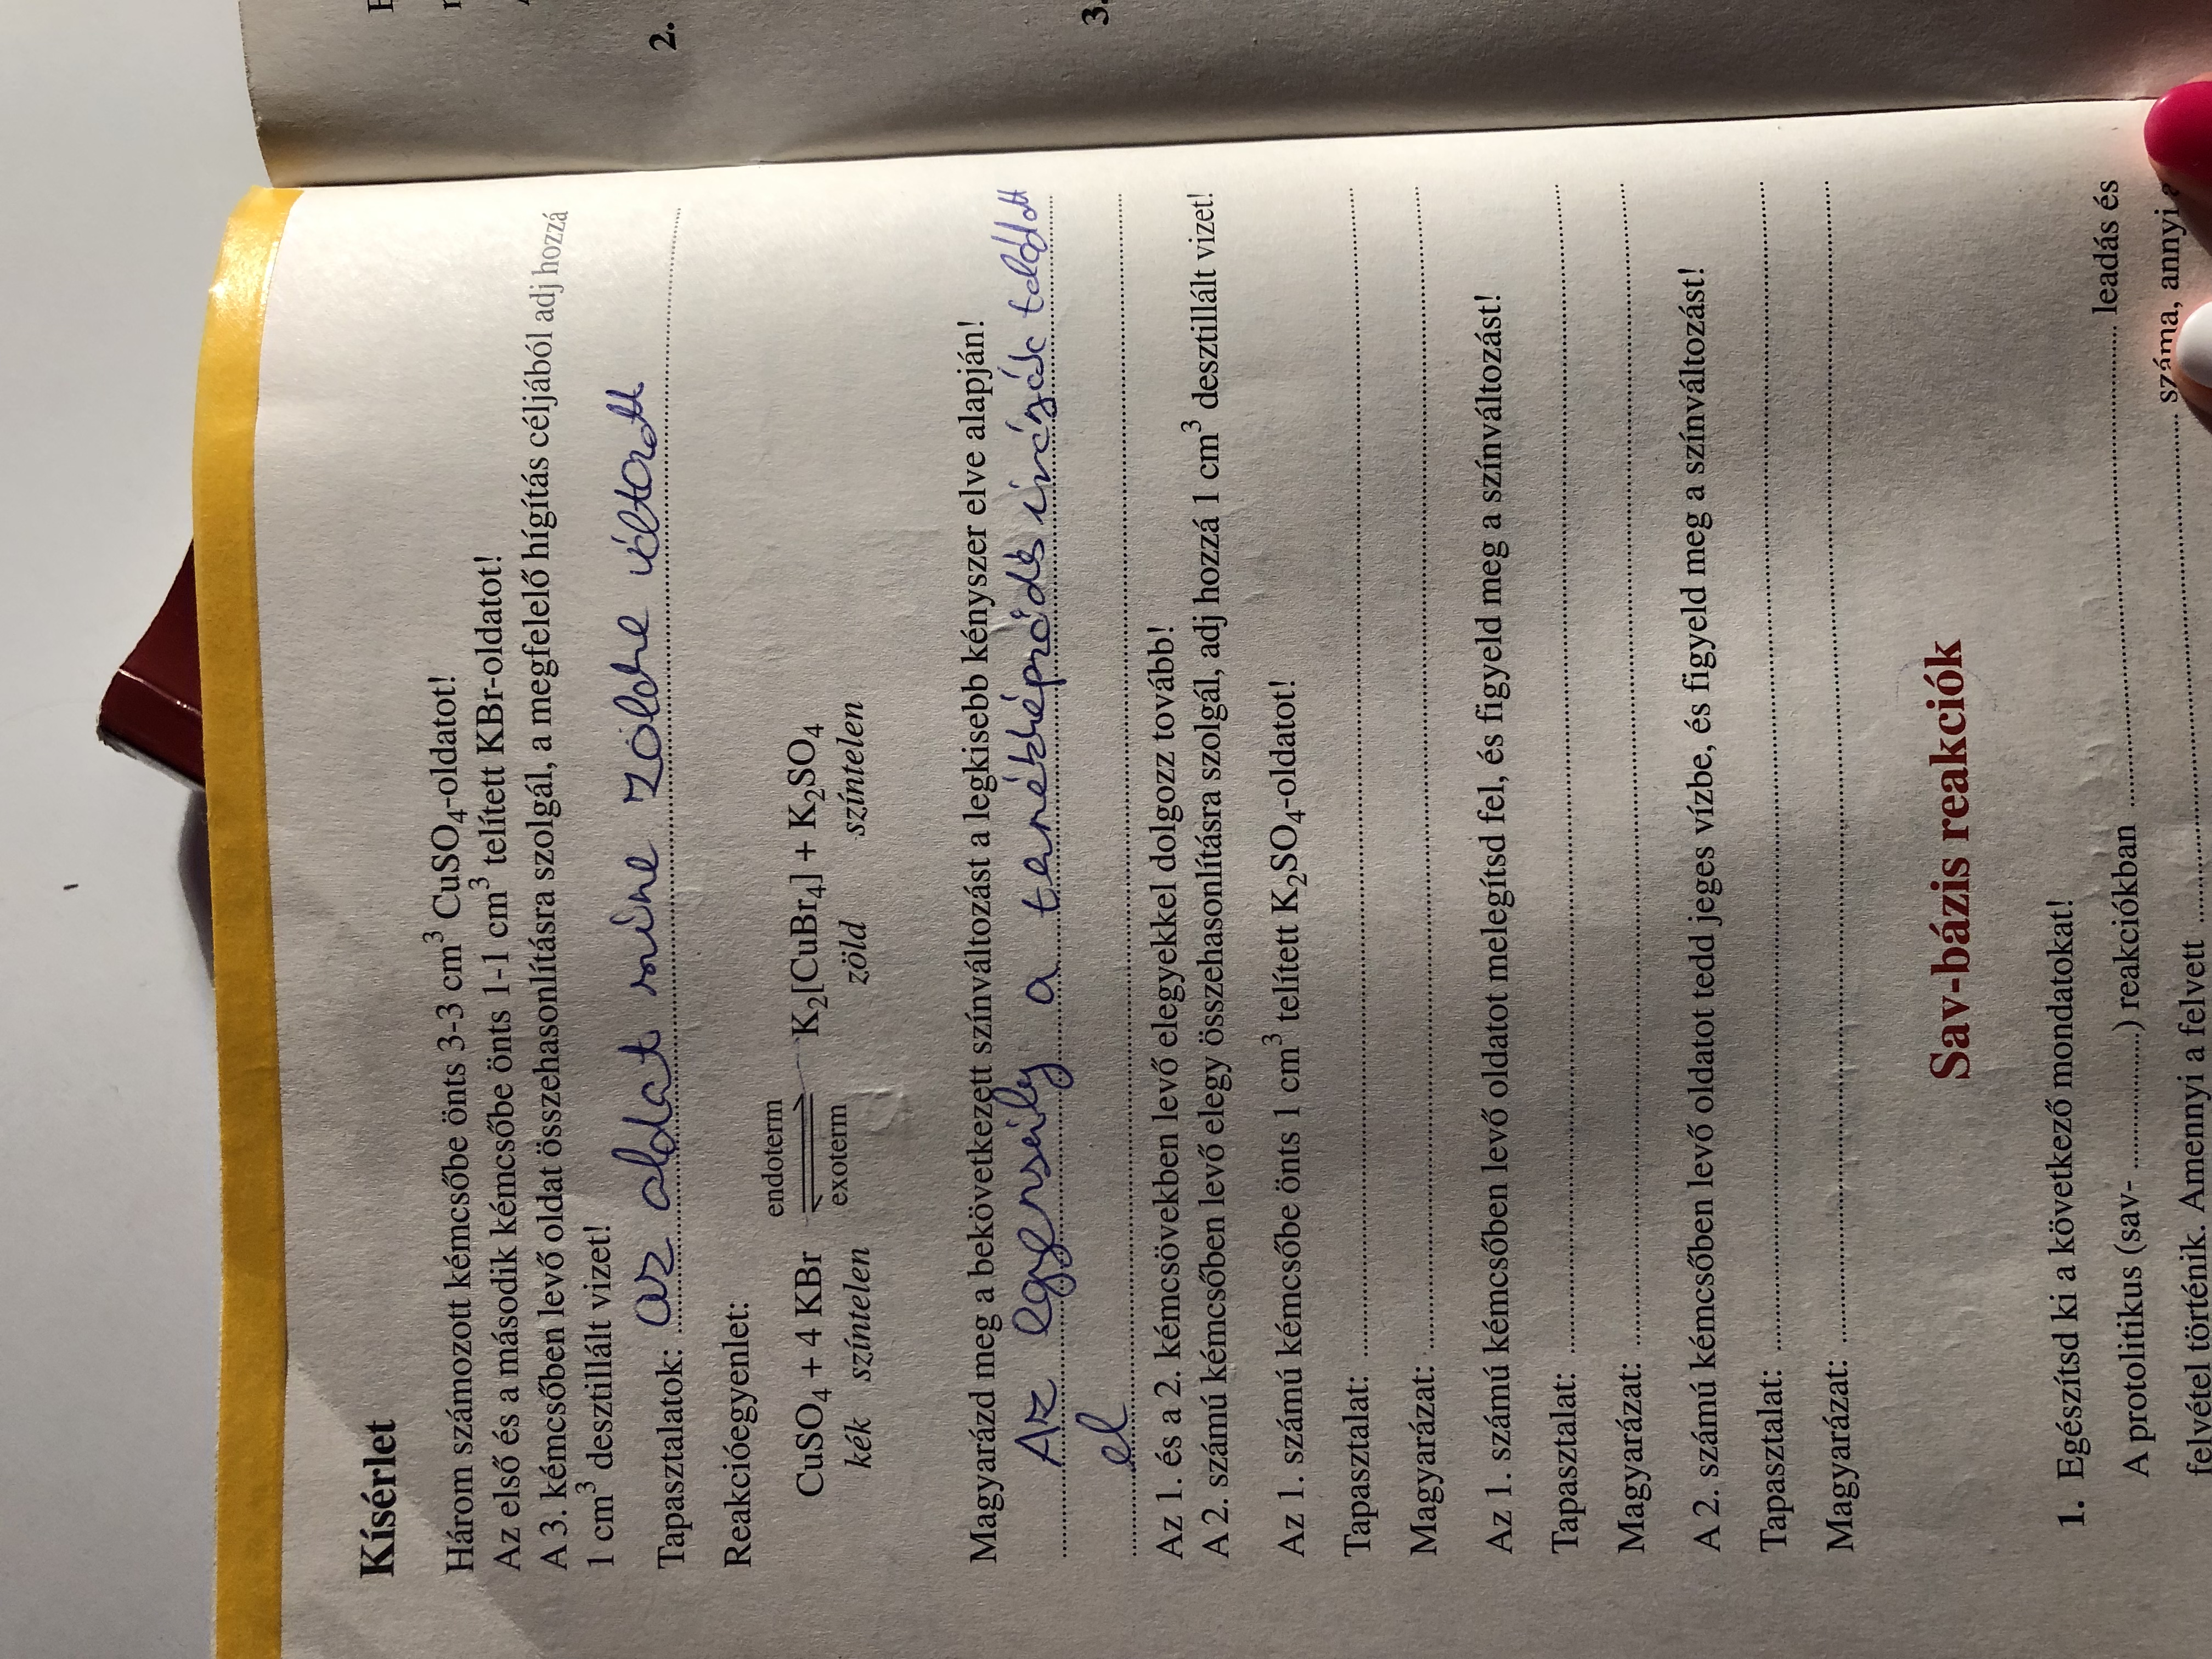 Kísérlet
Három számozott kémcsőbe önts 3-3 cm³ CuSO₄-oldatot!
Az első és a második kémcsőbe önts 1-1 cm³ telített KBr-oldatot!
A 3. kémcsőben levő oldat összehasonlításra szolgál, a megfelelő hígítás céljából adj hozzá
1 cm³ desztillált vizet!
Tapasztalatok: az oldat színe zöldre váltott
Reakcióegyenlet:
endoterm
CuSO₄ + 4 KBr ⇌ K₂[CuBr₄] + K₂SO₄
exoterm
kék színtelen zöld színtelen
Magyarázd meg a bekövetkezett színváltozást a legkisebb kényszer elve alapján!
Az egyensúly a termékképződés irányába tolódott
el
Az 1. és a 2. kémcsövekben levő elegyekkel dolgozz tovább!
A 2. számú kémcsőben levő elegy összehasonlításra szolgál, adj hozzá 1 cm³ desztillált vizet!
Az 1. számú kémcsőbe önts 1 cm³ telített K₂SO₄-oldatot!
Tapasztalat:
Magyarázat:
Az 1. számú kémcsőben levő oldatot melegítsd fel, és figyeld meg a színváltozást!
Tapasztalat:
Magyarázat:
A 2. számú kémcsőben levő oldatot tedd jeges vízbe, és figyeld meg a színváltozást!
Tapasztalat:
Magyarázat:
Sav-bázis reakciók
1. Egészítsd ki a következő mondatokat!
A protolitikus (sav- ............) reakciókban ............ leadás és
felvétel történik. Amennyi a felvett ............ száma, annyi
2.
3.